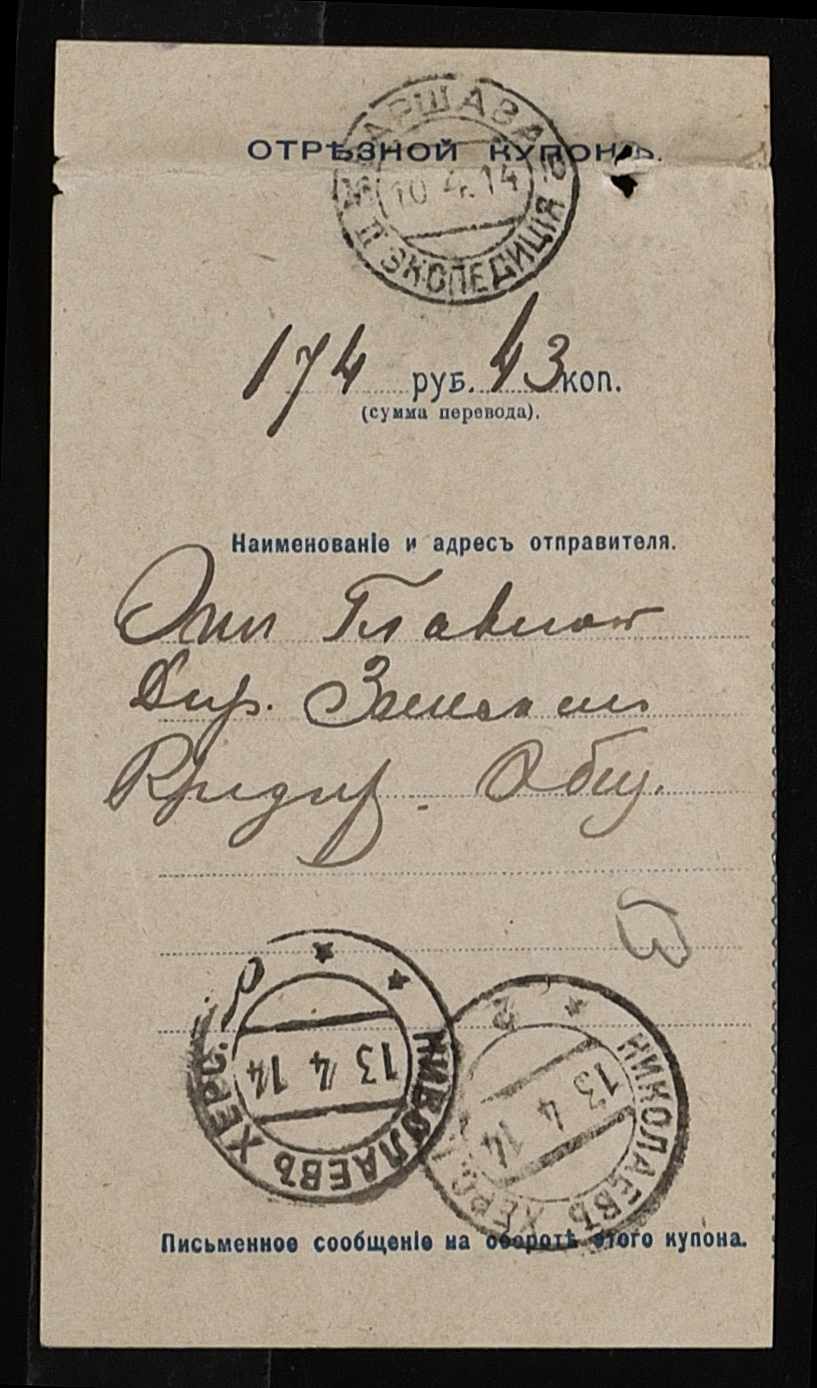 ВАРШАВА
ОТРѢЗНОЙ КУПОНЪ.
10 4 14
II ЭКСПЕДИЦІЯ
174 руб. 43 коп.
(сумма перевода).
Наименованіе и адресъ отправителя.
Отъ Главной
Дир. Земск
Кредит. Общ.
НИКОЛАЕВЪ ХЕРС.
13 4 14
НИКОЛАЕВЪ ХЕРС.
13 4 14
Письменное сообщеніе на оборотѣ этого купона.